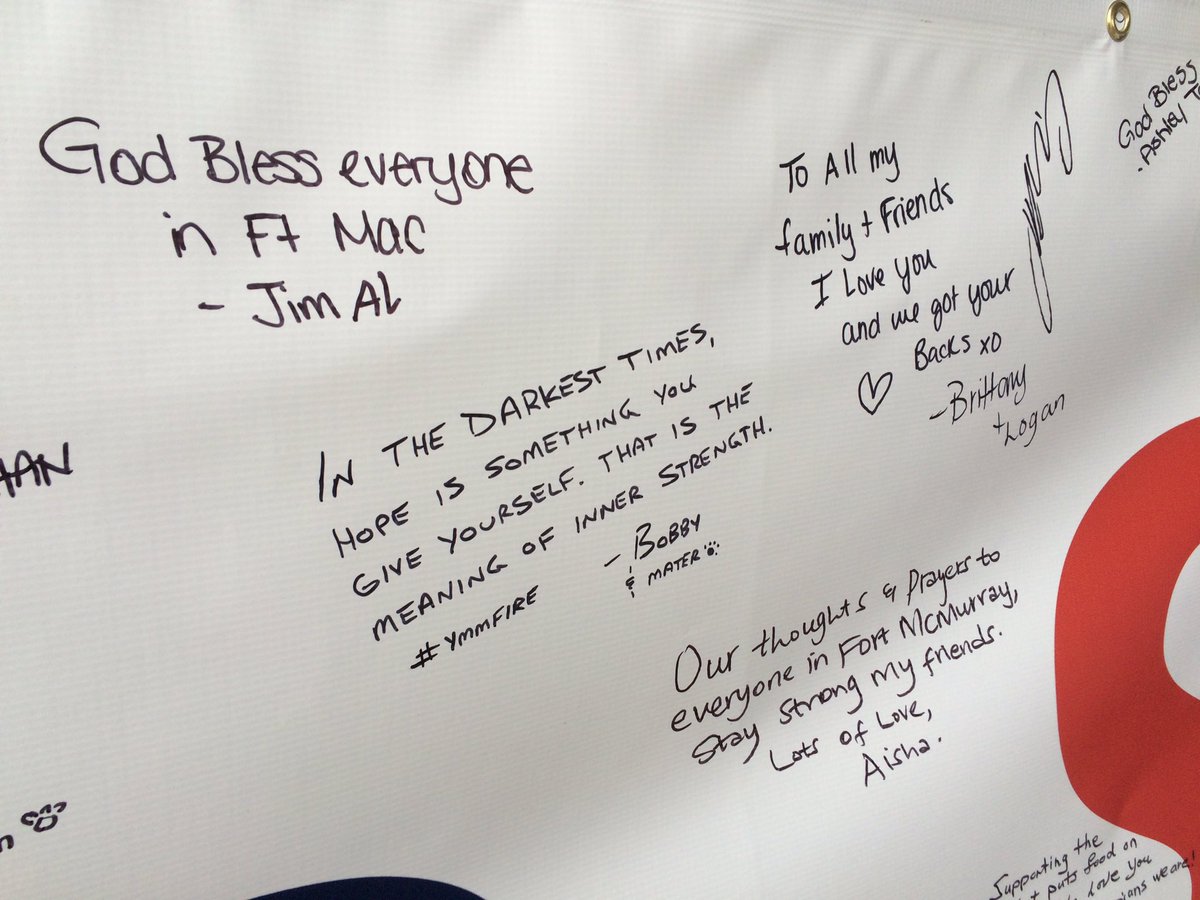 God Bless everyone
in Ft Mac
- Jim Al
To All my
family + Friends
I Love you
and we got your
Backs xo
- Brittany
+ Logan
God Bless
- Ashley
IN THE DARKEST TIMES,
HOPE IS SOMETHING YOU
GIVE YOURSELF. THAT IS THE
MEANING OF INNER STRENGTH.
- BOBBY
& MATER
#YMMFIRE
Our thoughts & Prayers to
everyone in Fort McMurray,
Stay strong my friends.
Lots of Love,
Aisha.
Supporting the
puts food on
Love You
we are!